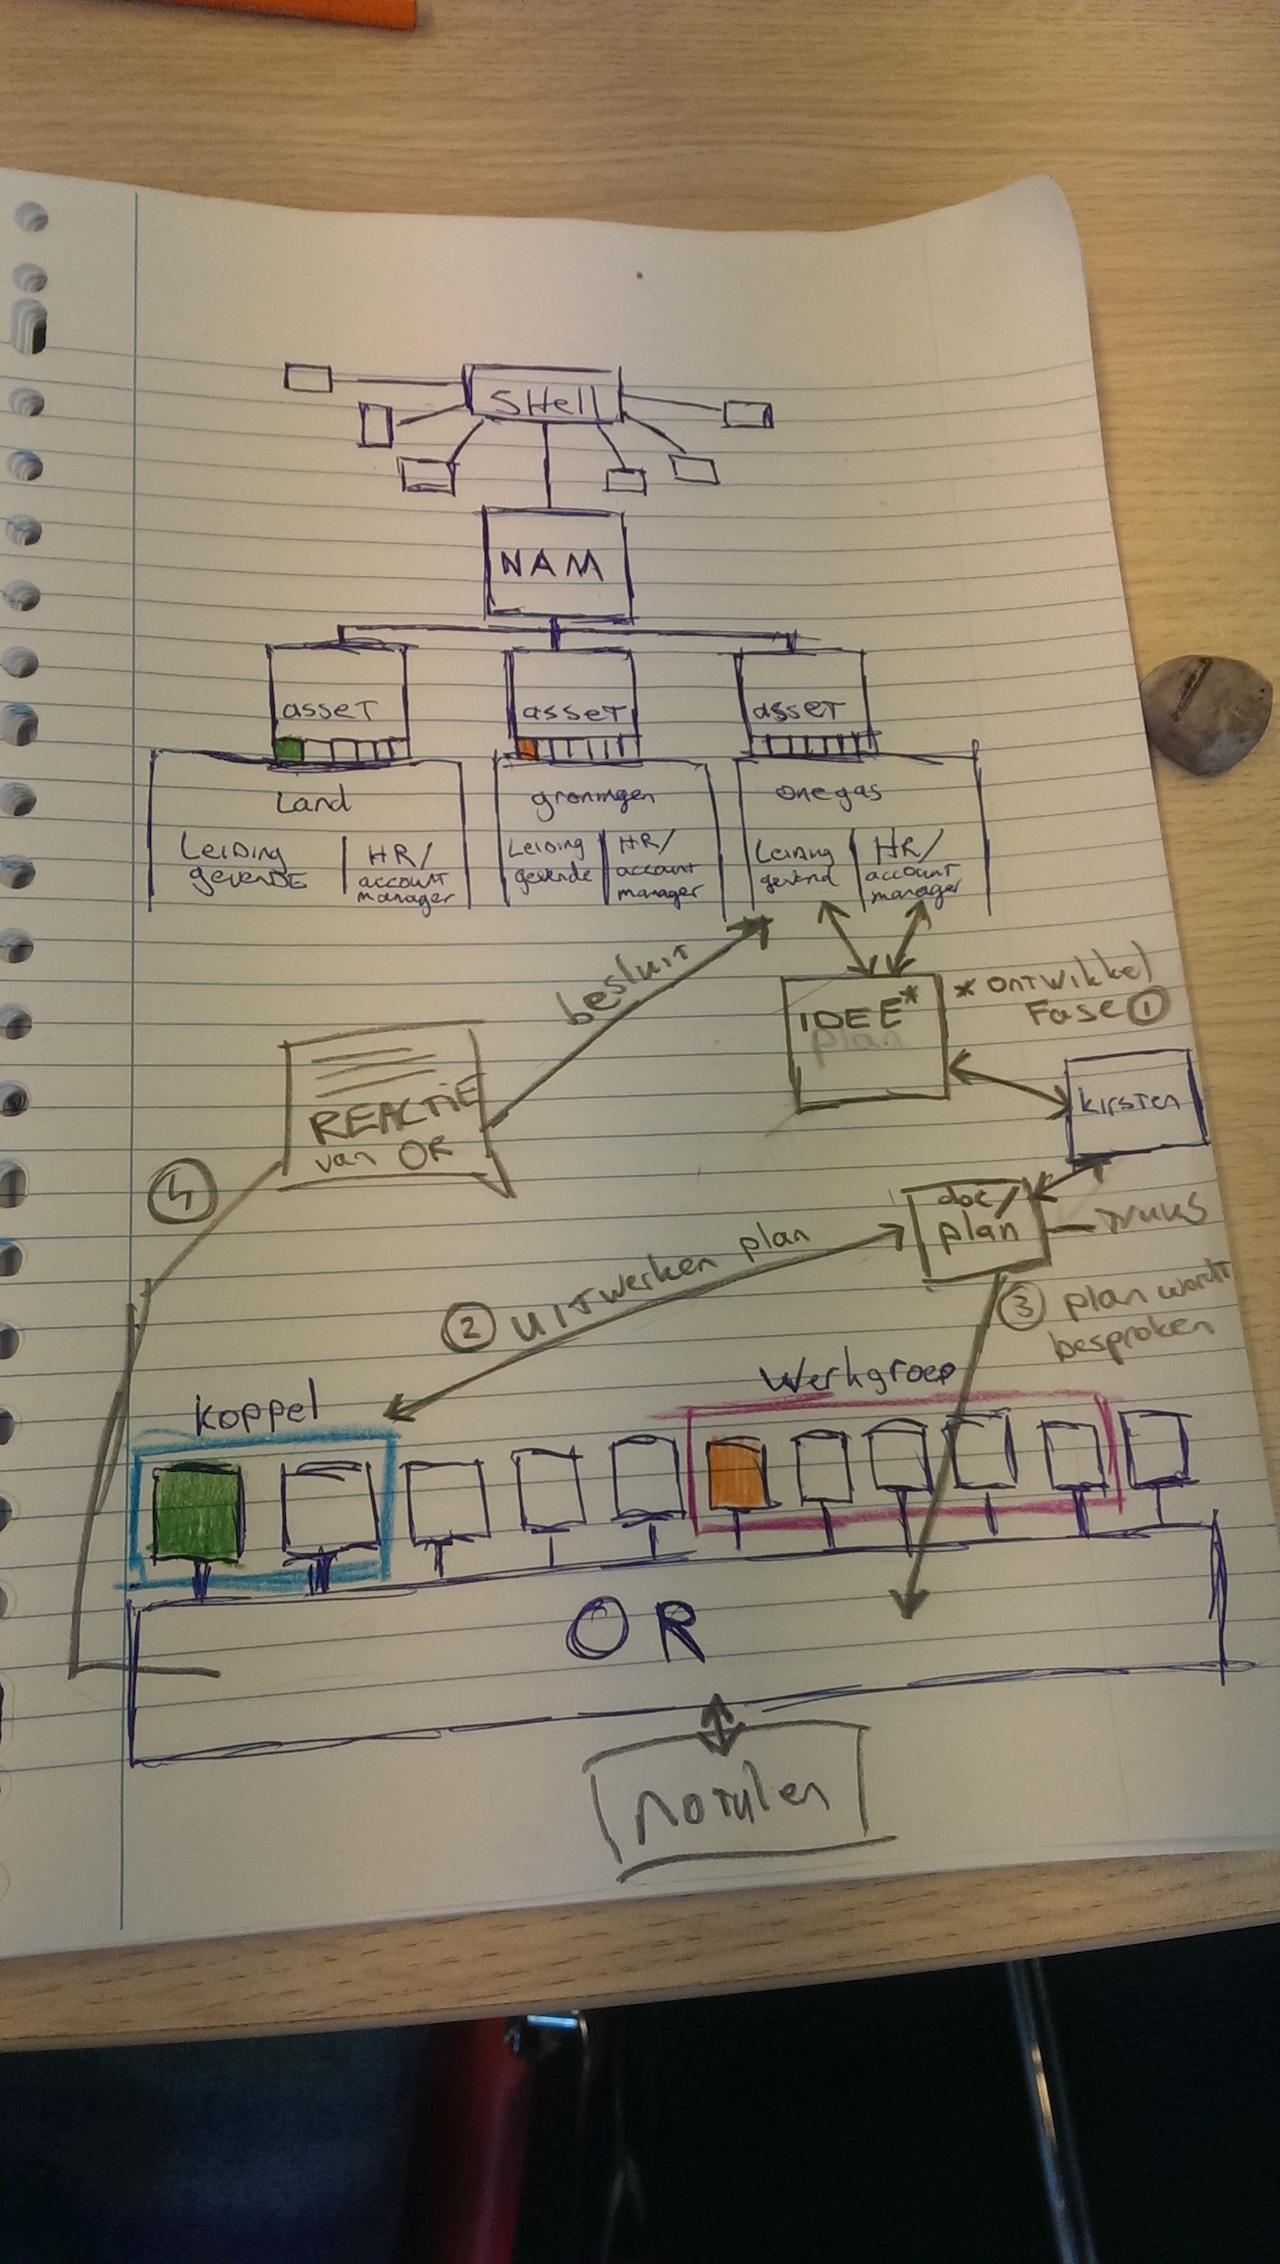 SHell
NAM
asset
asset
asset
Land
groningen
onegas
Leiding
gevende
HR/
account
manager
Leiding
gevende
HR/
account
manager
Leiding
gevend
HR/
account
manager
besluit
IDEE*
plan
* ontwikkel
Fase ①
kirsten
REACTiE
van OR
④
doc/
plan
② uitwerken plan
③ plan wordt
besproken
koppel
Werkgroep
OR
notulen